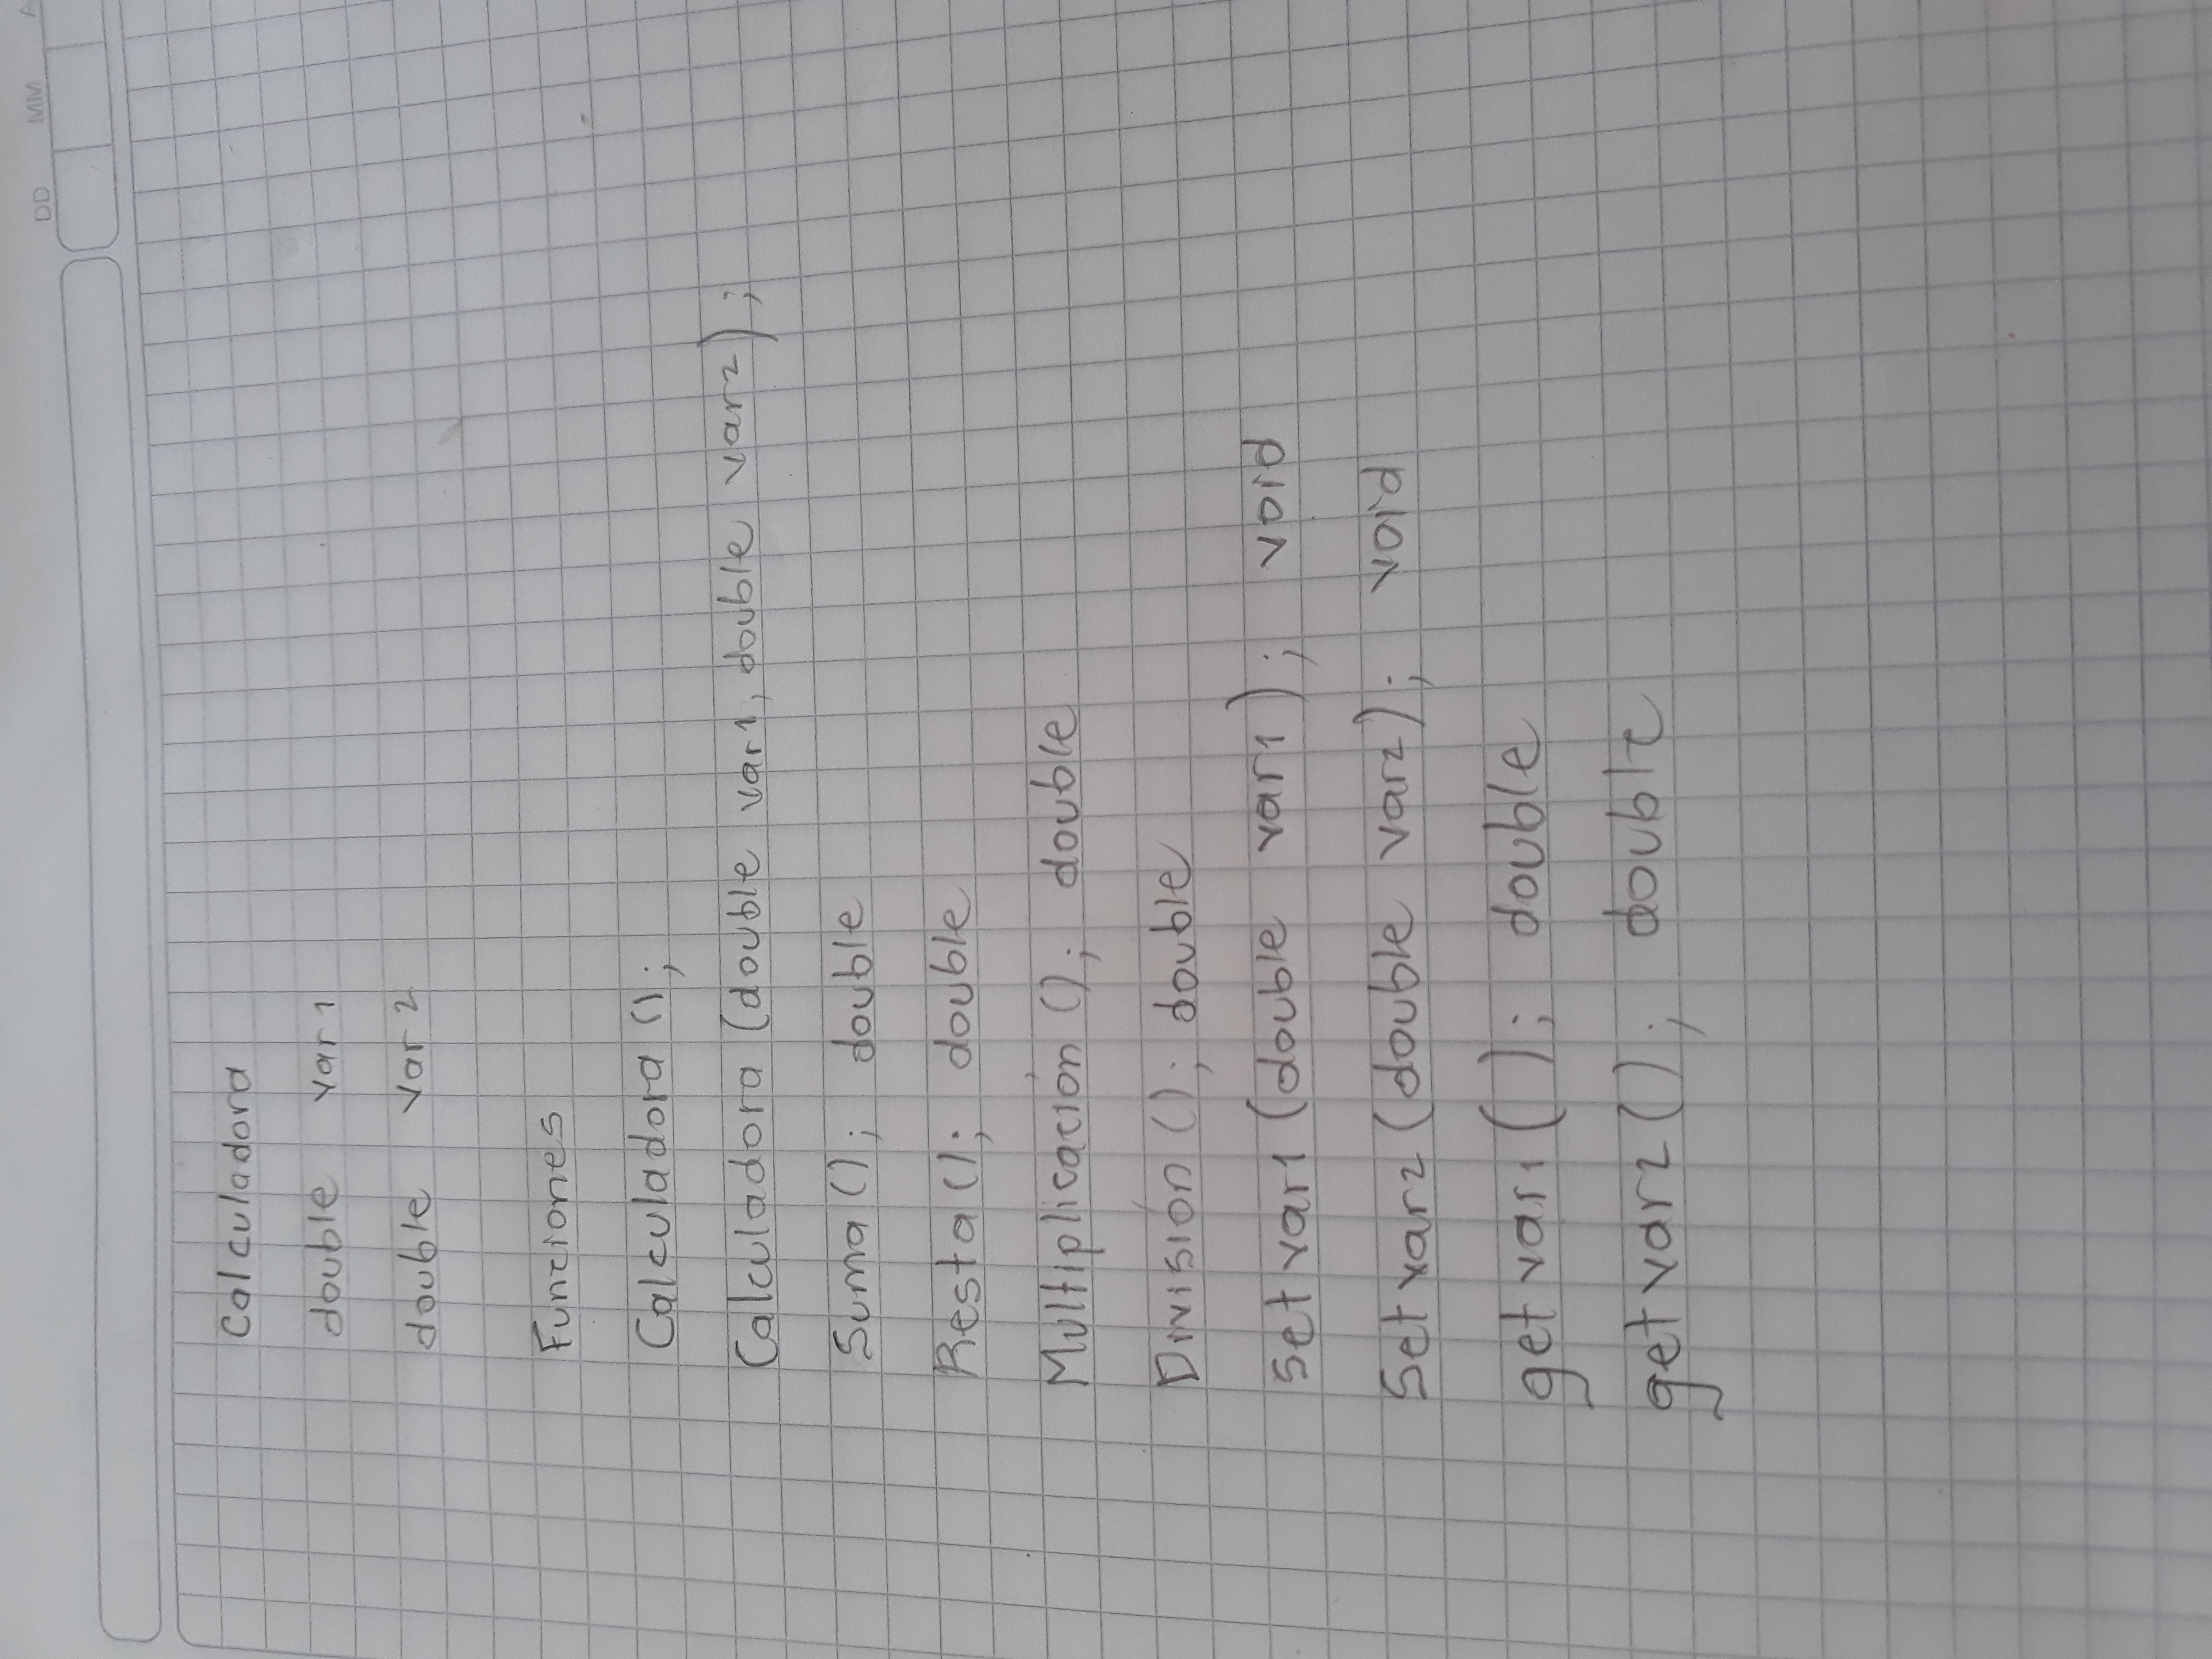 DD MM
Calculadora
double var1
double var2
Funciones
Calculadora ();
Calculadora (double var1, double var2);
Suma (); double
Resta (); double
Multiplicación (); double
División (); double
Set var1 (double var1); void
Set var2 (double var2); void
get var1 ( ); double
get var2 (); double